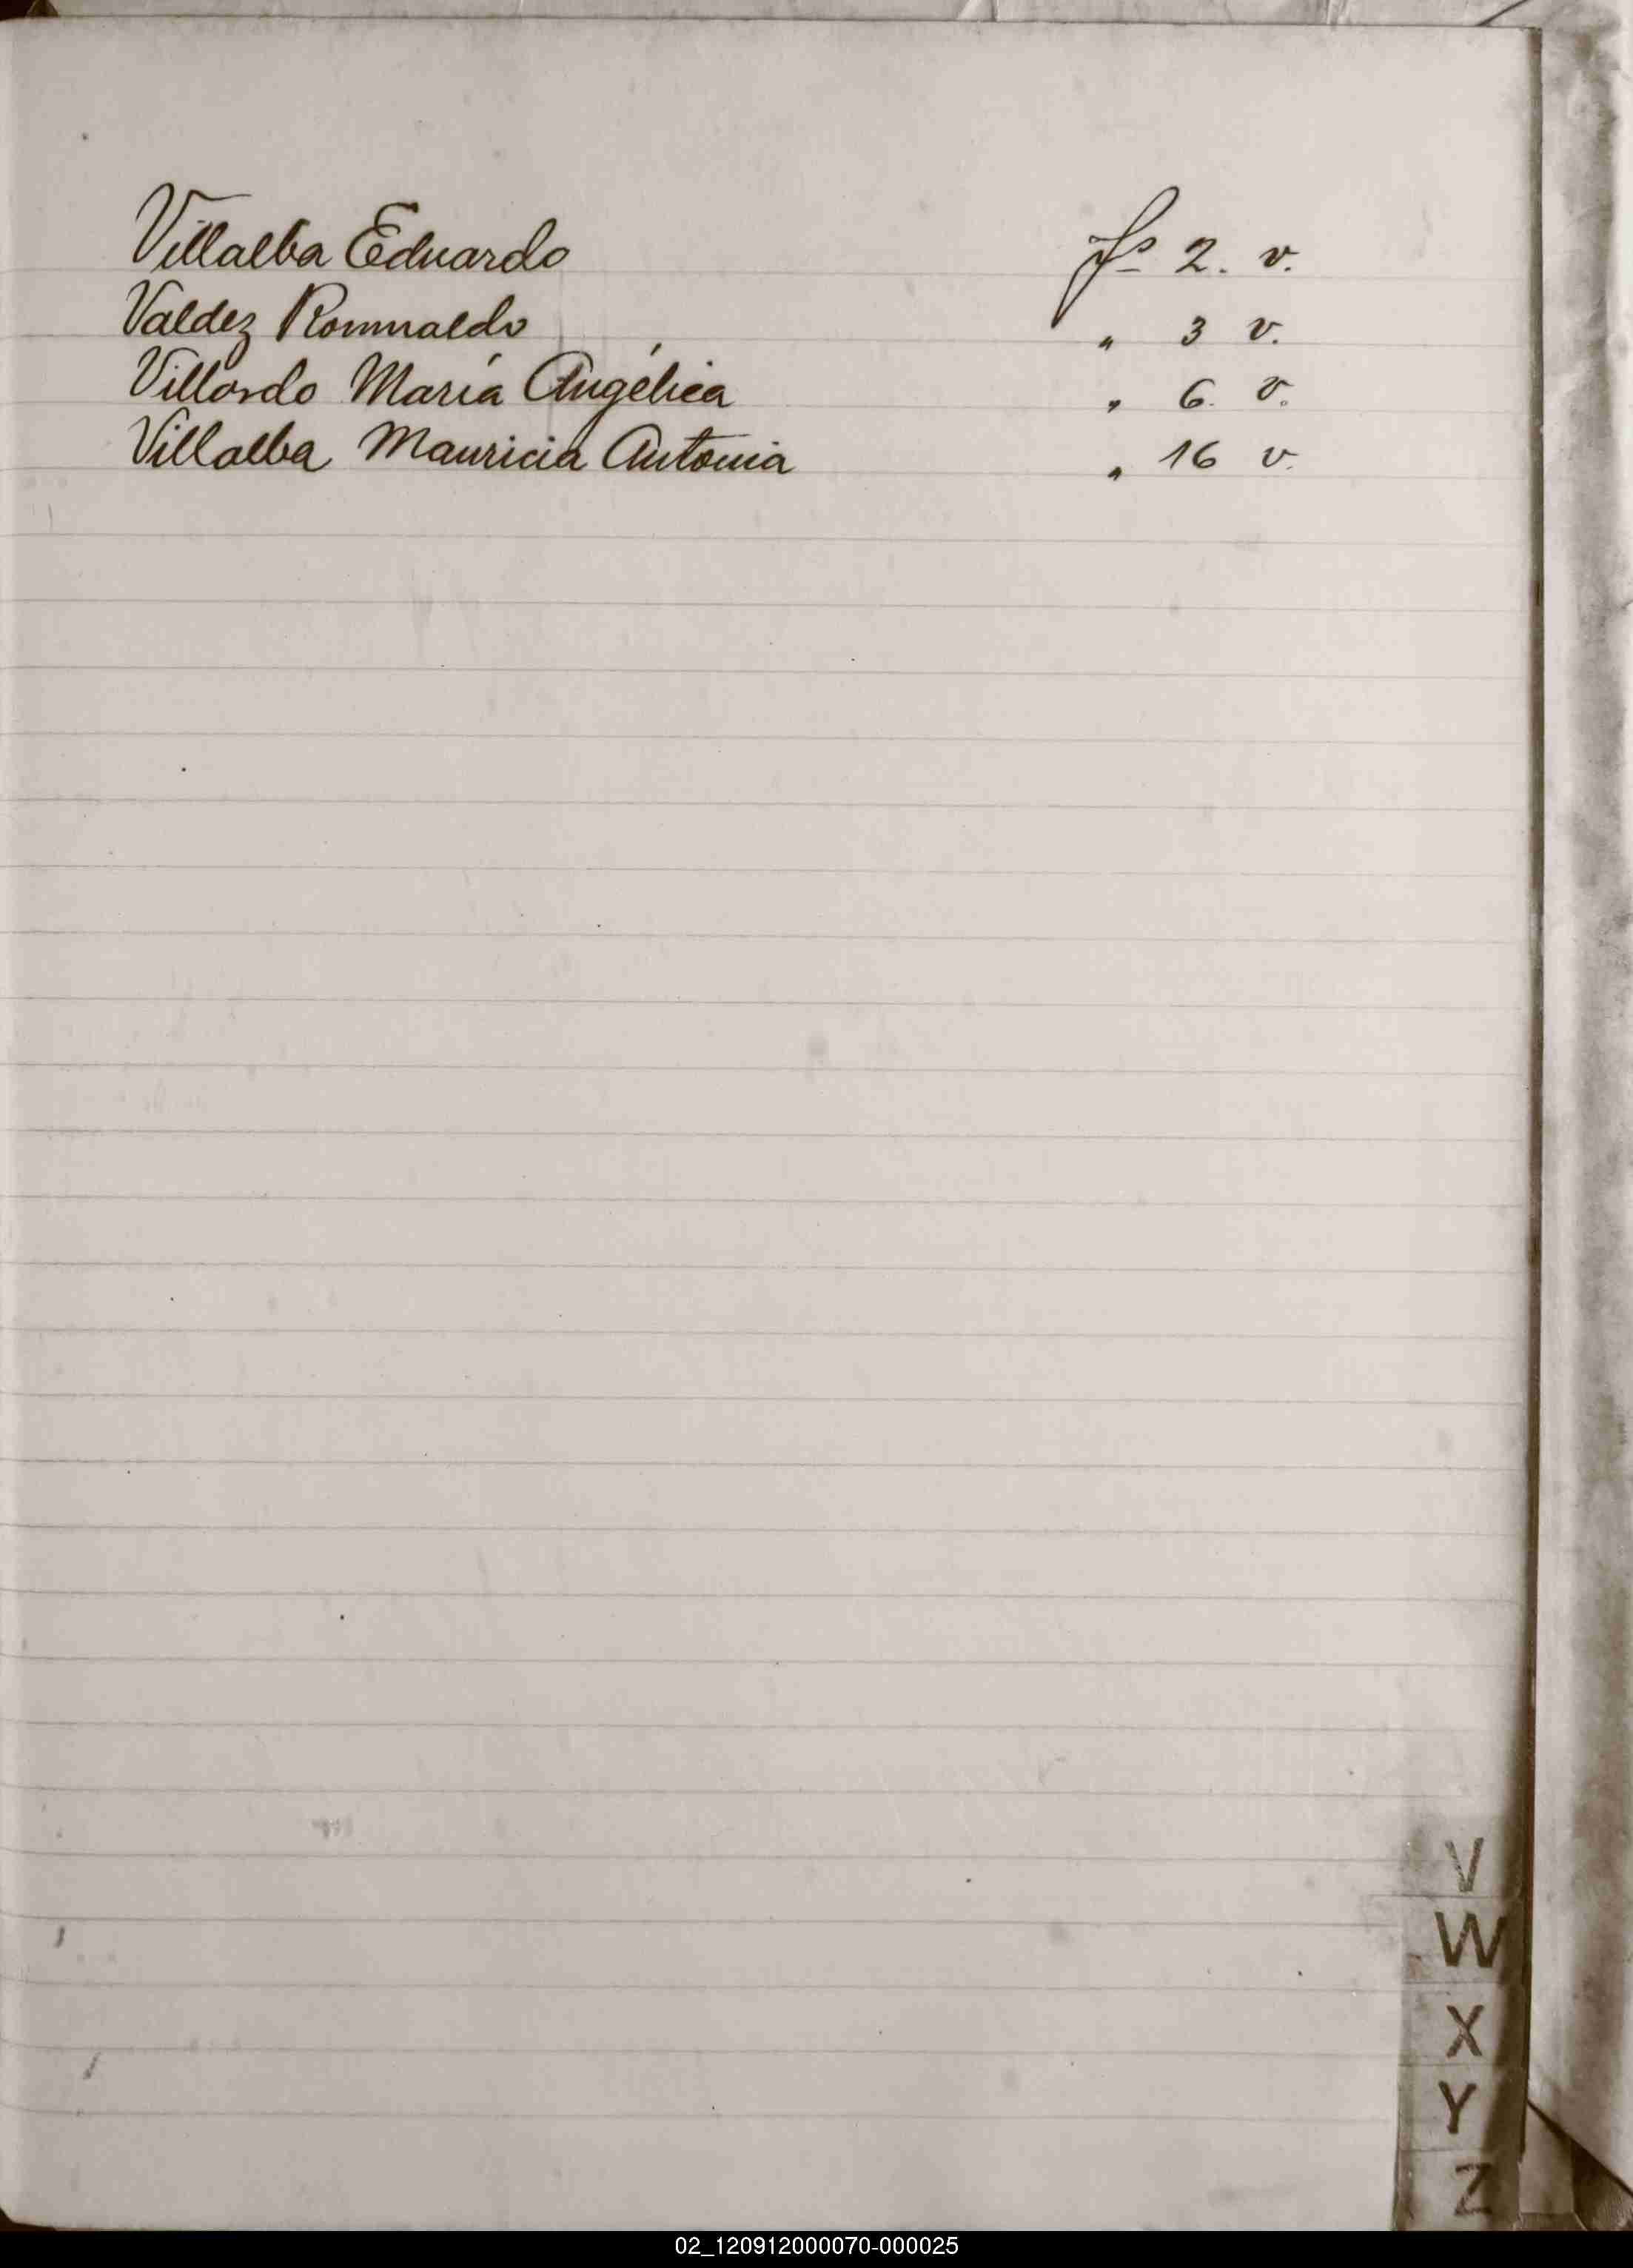 Villalba Eduardo fs 2. v.
Valdez Romualdo " 3 v.
Villordo María Angélica " 6. v.
Villalba Mauricia Antonia " 16 v.
V
W
X
Y
Z
02_120912000070-000025